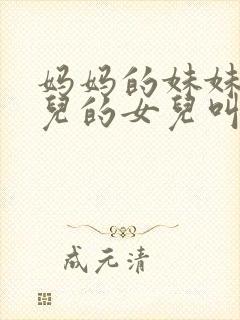 妈妈的妹妹
兒的女兒叫
成元清